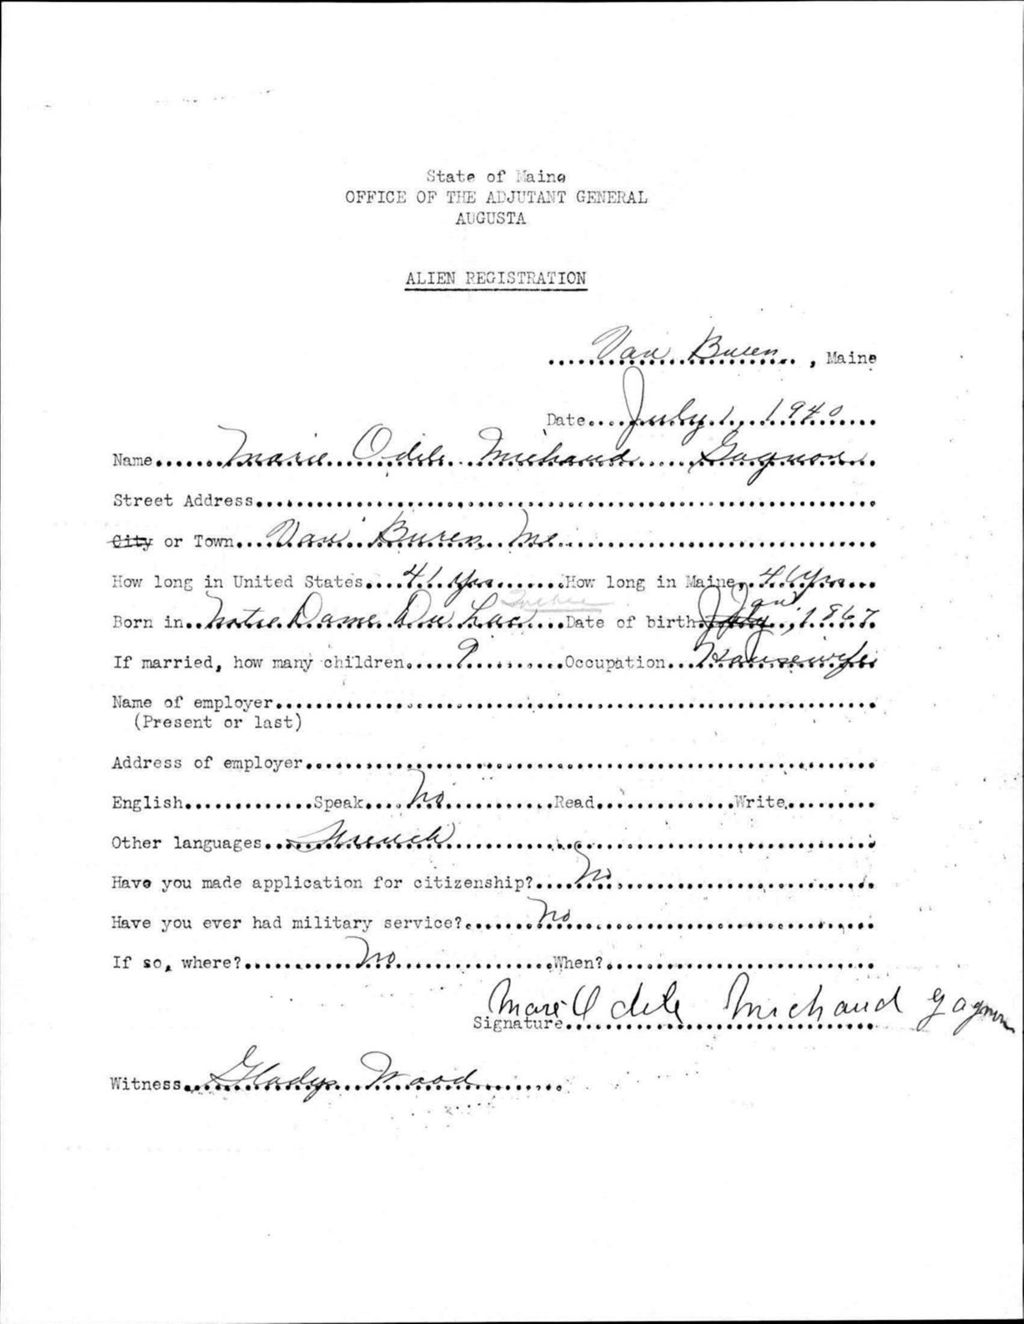 State of Maine
OFFICE OF THE ADJUTANT GENERAL
AUGUSTA
ALIEN REGISTRATION
Van Buren, Maine
Date July 1 1940
Name Marie Odile Michaud Gagnon
Street Address
City or Town Van Buren, Me.
How long in United States 41 Yrs How long in Maine 41 Yrs
Quebec
Born in Notre Dame Du Lac Date of birth July Jan 1, 1867
If married, how many children 9 Occupation Housewife
Name of employer
(Present or last)
Address of employer
English Speak No Read Write
Other languages French
Have you made application for citizenship? No
Have you ever had military service? No
If so, where? No When?
Marie Odile Michaud Gagnon
Signature
Witness Gladys Wood